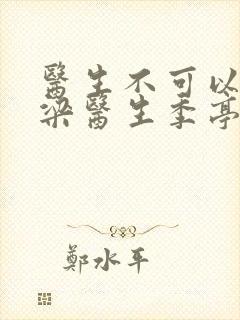 醫生不可以
梁醫生季亭
鄭水平